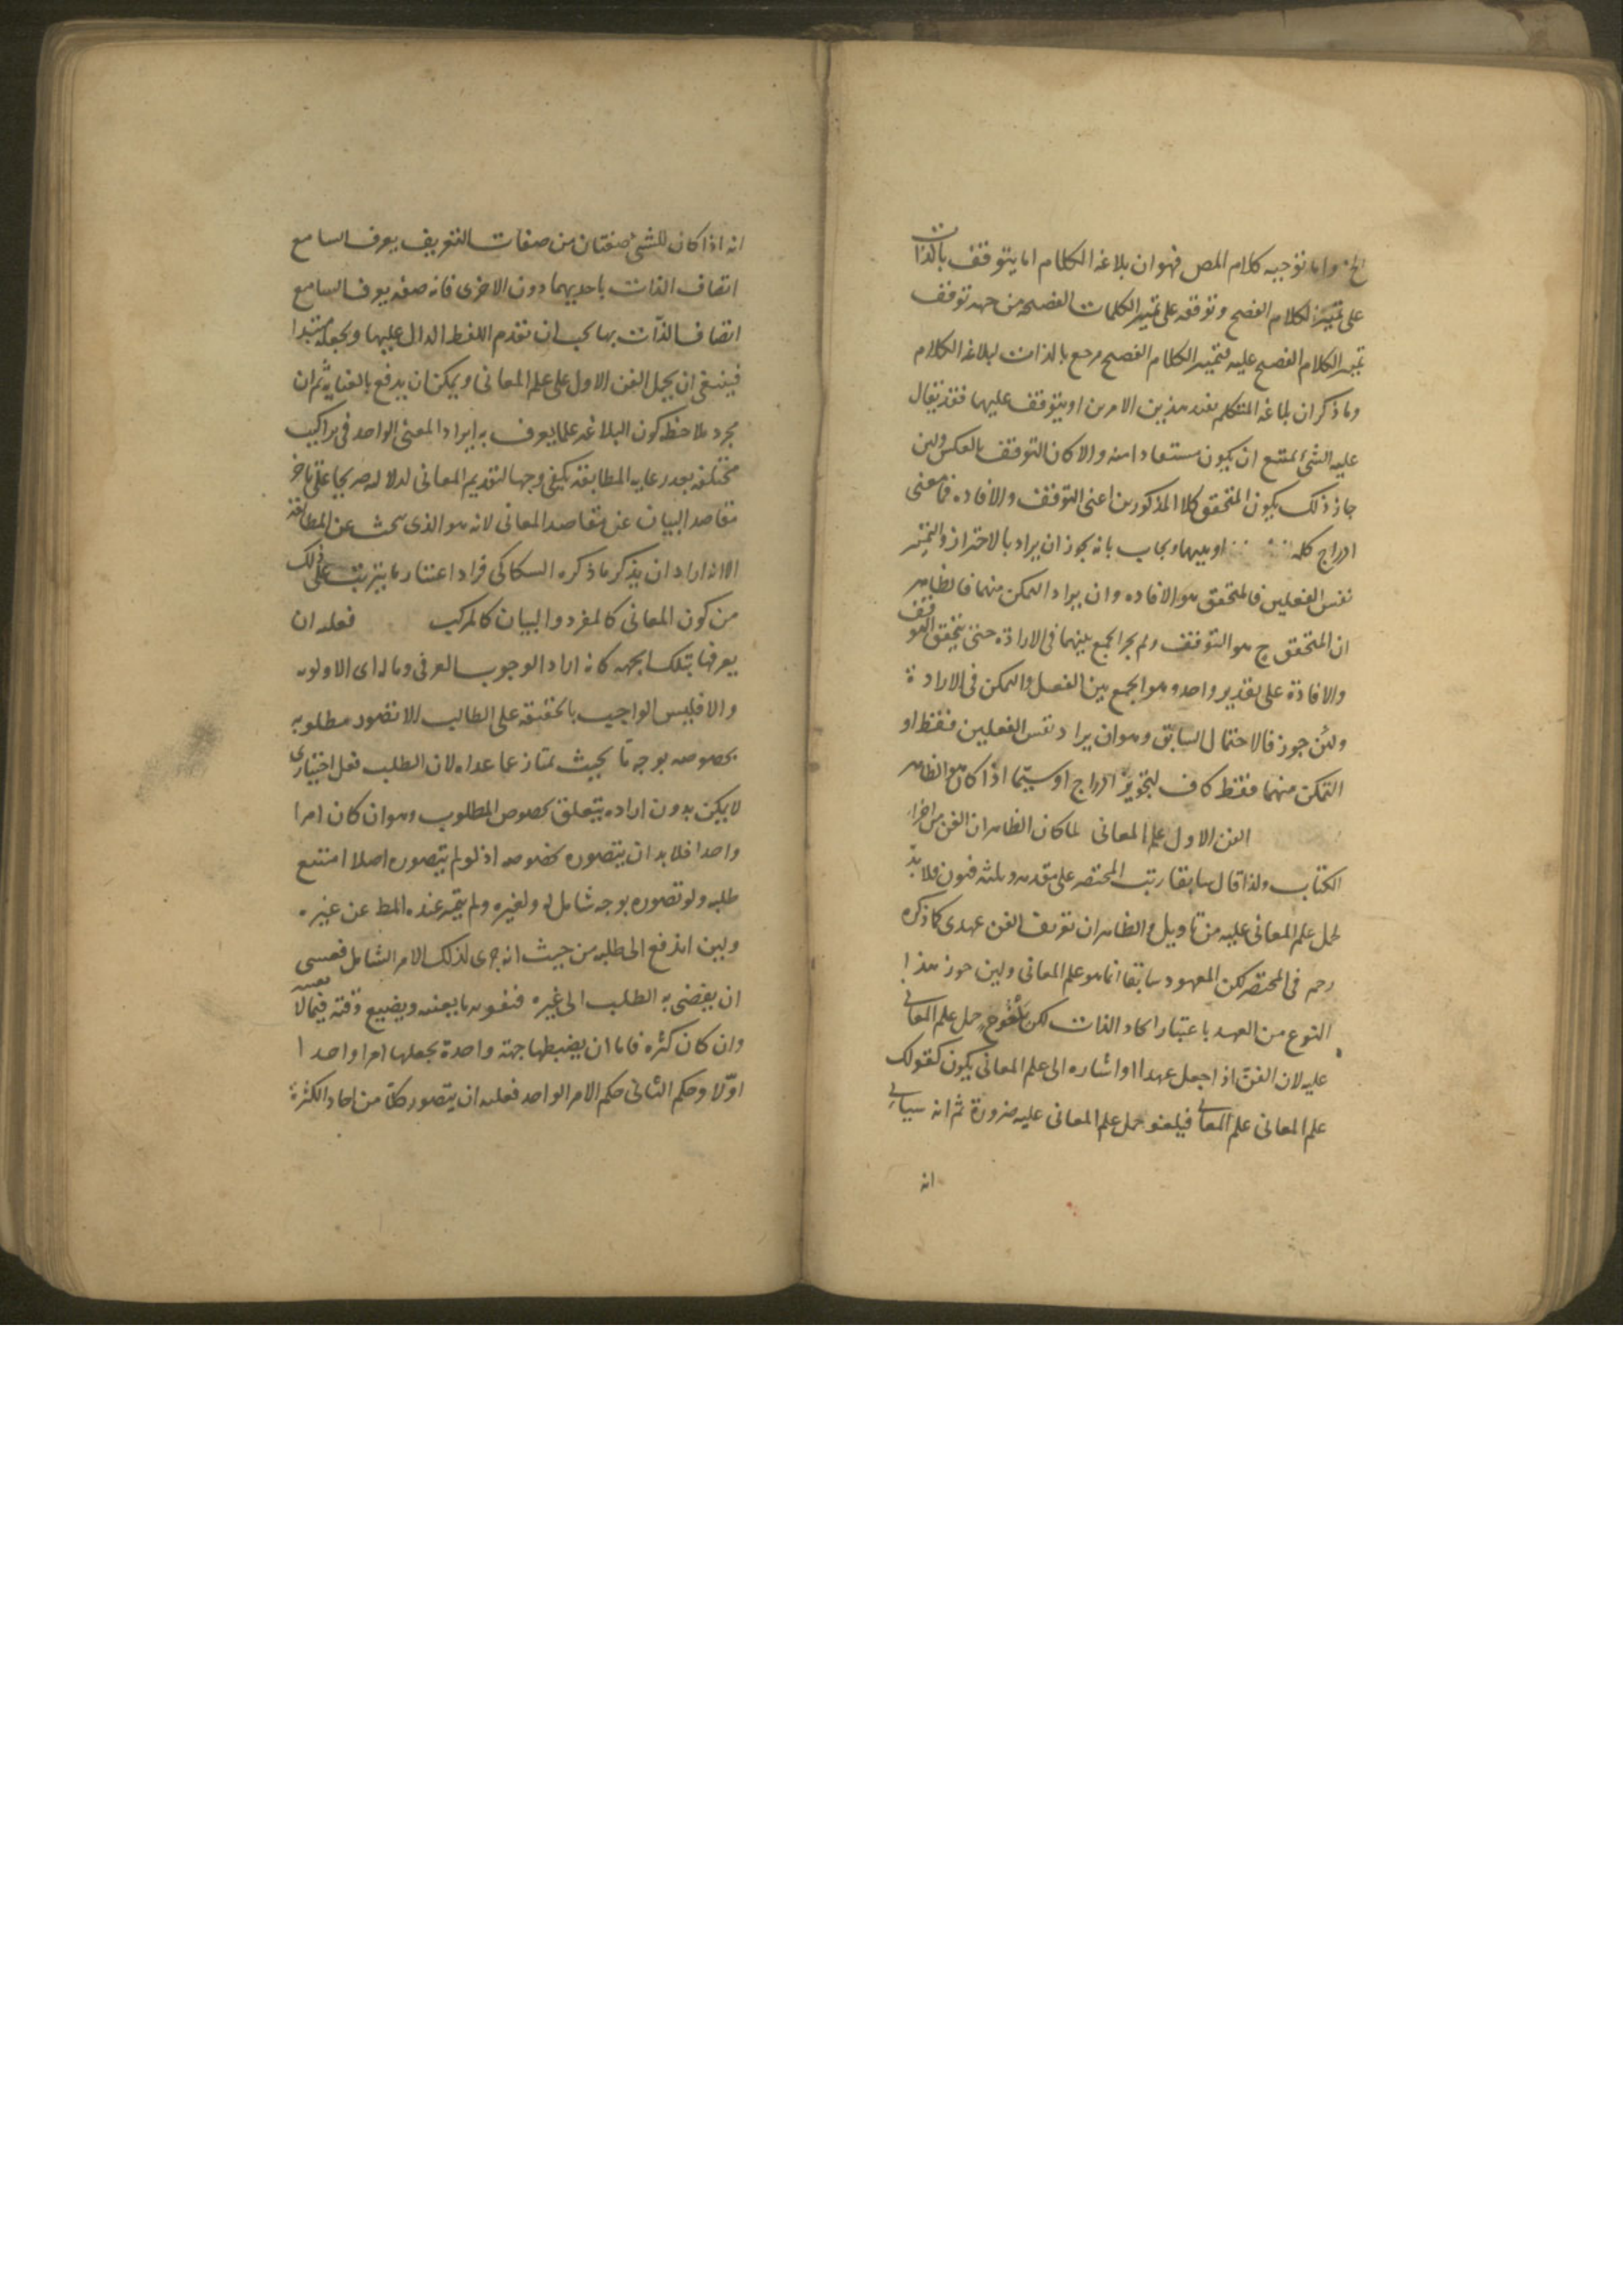 الخ واما توجيه كلام المص فهو ان بلاغة الكلام اما يتوقف بالذات
على تميز الكلام الفصيح وتوقفه على تميز الكلمات الفصيحه من جهه توقف
تميز الكلام الفصيح عليه فتميز الكلام الفصيح مرجع بالذات لبلاغه الكلام
وما ذكر ان بلاغه المتكلم بعد هذين الامرين او يتوقف عليهما فقد يقال
عليه الشئ يمتنع ان يكون مستفادا منه والا كان التوقف بالعكس ولين
جاز ذلك يكون المتحقق كلا المذكورين اعنى التوقف والافاده فما معنى
ادراج كلمه او بينهما ويجاب بانه يجوز ان يراد بالاحتراز والتميز
نفس الفعلين فالمتحقق هو الافاده وان يراد التمكن منهما فالظاهر
ان المتحقق ح هو التوقف ولم يجز الجمع بينهما فى الارادة حتى يتحقق التوقف
والافادة على تقدير واحد وهو الجمع بين الفعل والتمكن فى الارادة
ولئن جوز فالاحتمال السابق وهو ان يراد نفس الفعلين فقط او
التمكن منهما فقط كاف لتجويز ادراج او سيما اذا كان هو الظاهر
الفن الاول علم المعانى لما كان الظاهر ان الفن من اجزاء
الكتاب ولذا قال سابقا رتب المختصر على مقدمه وثلثه فنون فلا بد
لحمل علم المعانى عليه من تاويل والظاهر ان تعريف الفن عهدى كما ذكره
رحمه فى المختصر لكن المعهود سابقا انما هو علم المعانى ولين جوز هذا
النوع من العهد باعتبار اتحاد الذات لكن حمل علم المعانى
عليه لان الفن اذا جعل عهدا او اشاره الى علم المعانى يكون كقولك
علم المعانى علم المعانى فيلغو حمل علم المعانى عليه ضرورة ثم انه سياتى
انه
انه اذا كان للشئ صفتان من صفات التعريف يعرف السامع
اتصاف الذات باحديهما دون الاخرى فانه صفه يعرف السامع
اتصاف الذات بها يجب ان تقدم اللفظ الدال عليها ويجعله مبتدا
فينبغى ان يحمل الفن الاول على علم المعانى ويمكن ان يدفع بالعنايه ثم ان
مجرد ملاحظه كون البلاغه علما يعرف به ايراد المعنى الواحد فى تراكيب
مختلفه بعد رعايه المطابقه يكفى وجها لتقديم المعانى لدلاله صريحا على تاخر
مقاصد البيان عن مقاصد المعانى لانه هو الذى يبحث عن المطابقه
الا انه اراد ان يذكر ما ذكره السكاكى فزاد اعتبار ما يترتب على ذلك
من كون المعانى كالمفرد والبيان كالمركب فعليه ان
يعرفها بتلك الجهه كانه اراد الوجوب العرفى وماله اى الاولويه
والا فليس الواجب بالحقيقه على الطالب الا تصور مطلوبه
بخصوصه بوجه ما بحيث يمتاز عما عداه لان الطلب فعل اختيارى
لا يمكن بدون اراده يتعلق بخصوص المطلوب وهو ان كان امرا
واحدا فلا بد ان يتصوره بخصوصه اذ لو لم يتصوره اصلا امتنع
طلبه ولو تصوره بوجه شامل له ولغيره ولم يتميز عنده المط عن غيره
ولين اندفع الى طلبه من حيث انه جزى لذلك الامر الشامل فعسى
ان يفضى به الطلب الى غيره فيفوته ما يعنيه ويضيع وقته فيما لا يعنيه
وان كان كثره فاما ان يضبطها جهة واحدة يجعلها امرا واحدا
اولا وحكم الثانى حكم الامر الواحد فعليه ان يتصور كلا من احاد الكثرة